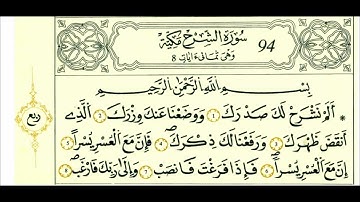 سُورَةُ الشَّرْحِ مَكِّيَّة 94
وَهْيَ ثَمَانِي ءَايَات 8
بِسْمِ اللَّهِ الرَّحْمَٰنِ الرَّحِيمِ
* أَلَمْ نَشْرَحْ لَكَ صَدْرَكَ 1 وَوَضَعْنَا عَنكَ وِزْرَكَ 2 الَّذِي
ربع
أَنقَضَ ظَهْرَكَ 3 وَرَفَعْنَا لَكَ ذِكْرَكَ 4 فَإِنَّ مَعَ الْعُسْرِ يُسْراً 5
إِنَّ مَعَ الْعُسْرِ يُسْراً 6 فَإِذَا فَرَغْتَ فَانصَبْ 7 وَإِلَىٰ رَبِّكَ فَارْغَب 8